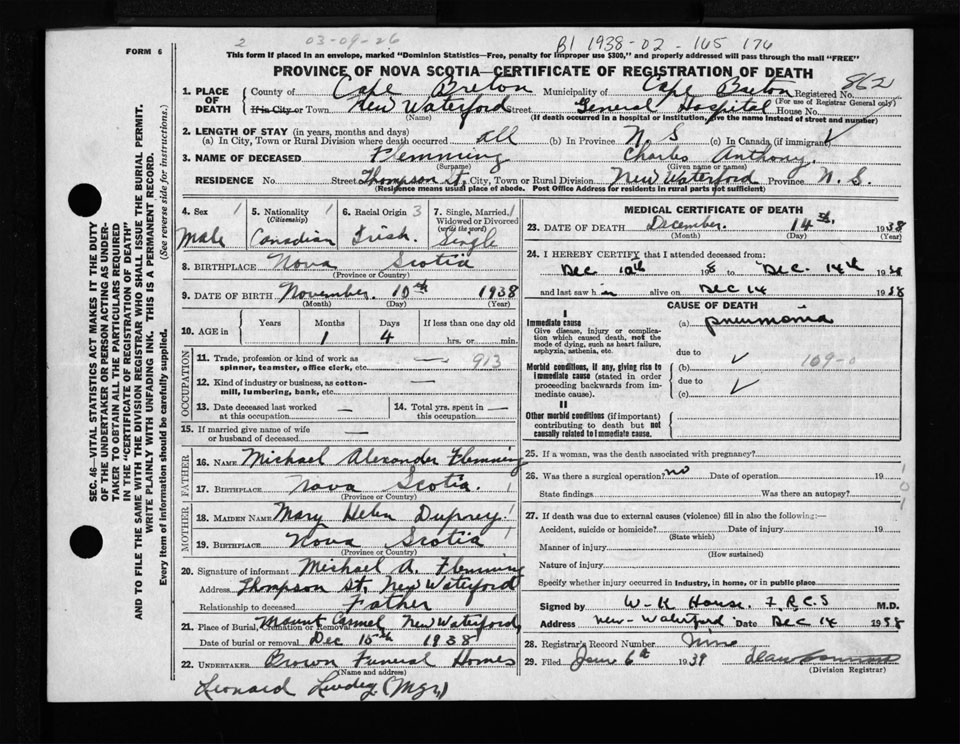 2 03-09-26 B1 1938-02-165 176
FORM 6
This form if placed in an envelope, marked "Dominion Statistics—Free, penalty for improper use $300," and properly addressed will pass through the mail "FREE"
PROVINCE OF NOVA SCOTIA—CERTIFICATE OF REGISTRATION OF DEATH
862
1. PLACE OF DEATH County of Cape Breton Municipality of Cape Breton Registered No.
(For use of Registrar General only)
If in City or Town New Waterford Street General Hospital House No.
(Name) (If death occurred in a hospital or institution, give the name instead of street and number)
2. LENGTH OF STAY (in years, months and days)
(a) In City, Town or Rural Division where death occurred all (b) In Province N S (c) In Canada (if immigrant) ✓
3. NAME OF DECEASED Flemming Charles Anthony.
(Surname) (Given name or names)
RESIDENCE No. Street Thompson St, City, Town or Rural Division New Waterford Province N. S.
(Residence means usual place of abode. Post Office Address for residents in rural parts not sufficient)
4. Sex 1 Male
5. Nationality 1 (Citizenship) Canadian
6. Racial Origin 3 Irish.
7. Single, Married, 1 Widowed or Divorced (write the word) Single
8. BIRTHPLACE Nova Scotia
(Province or Country)
9. DATE OF BIRTH November. 10th 1938
(Month) (Day) (Year)
10. AGE in Years Months Days If less than one day old
1 4 hrs. or min.
OCCUPATION
11. Trade, profession or kind of work as spinner, teamster, office clerk, etc. — 913
12. Kind of industry or business, as cotton-mill, lumbering, bank, etc. —
13. Date deceased last worked at this occupation —
14. Total yrs. spent in this occupation —
15. If married give name of wife or husband of deceased —
FATHER
16. NAME Michael Alexander Flemming
17. BIRTHPLACE Nova Scotia. 1
(Province or Country)
MOTHER
18. MAIDEN NAME Mary Helen Duprey 1
19. BIRTHPLACE Nova Scotia 1
(Province or Country)
20. Signature of informant Michael A. Flemming
Address Thompson St, New Waterford
Relationship to deceased Father
21. Place of Burial, Cremation or Removal Mount Carmel, New Waterford,
Date of burial or removal Dec 15th 1938
22. UNDERTAKER Brown Funeral Homes
(Name and address)
Leonard (Mgr)
MEDICAL CERTIFICATE OF DEATH
23. DATE OF DEATH December. 14th. 1938
(Month) (Day) (Year)
24. I HEREBY CERTIFY that I attended deceased from
Dec 10th 8 to Dec. 14th 1938
and last saw him alive on Dec 14 1938
CAUSE OF DEATH
I
Immediate cause
Give disease, injury or complication which caused death, not the mode of dying, such as heart failure, asphyxia, asthenia, etc.
(a) pneumonia
due to ✓
Morbid conditions, if any, giving rise to immediate cause (stated in order proceeding backwards from immediate cause).
(b) 109-0
due to ✓
(c)
II
Other morbid conditions (if important) contributing to death but not causally related to immediate cause.
25. If a woman, was the death associated with pregnancy?
26. Was there a surgical operation? no Date of operation 19
State findings Was there an autopsy?
1
0
1
27. If death was due to external causes (violence) fill in also the following:—
Accident, suicide or homicide? Date of injury 19
(State which)
Manner of injury
(How sustained)
Nature of injury
Specify whether injury occurred in industry, in home, or in public place
Signed by W-K House. F.R.C.S M.D.
Address New-Waterford Date Dec 14 1938
28. Registrar's Record Number Nine
29. Filed June 6th 1939
(Division Registrar)
SEC. 46—VITAL STATISTICS ACT MAKES IT THE DUTY
OF THE UNDERTAKER OR PERSON ACTING AS UNDER-
TAKER TO OBTAIN ALL THE PARTICULARS REQUIRED
IN THE "CERTIFICATE OF REGISTRATION OF DEATH"
AND TO FILE THE SAME WITH THE DIVISION REGISTRAR WHO SHALL ISSUE THE BURIAL PERMIT.
WRITE PLAINLY WITH UNFADING INK. THIS IS A PERMANENT RECORD.
Every item of information should be carefully supplied. (See reverse side for instructions.)